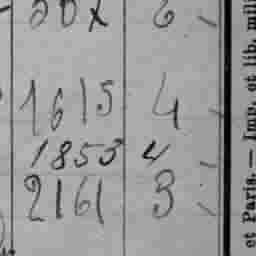 1615 4
1853 4
2161 3
et Paris. — Imp. et lib. mili